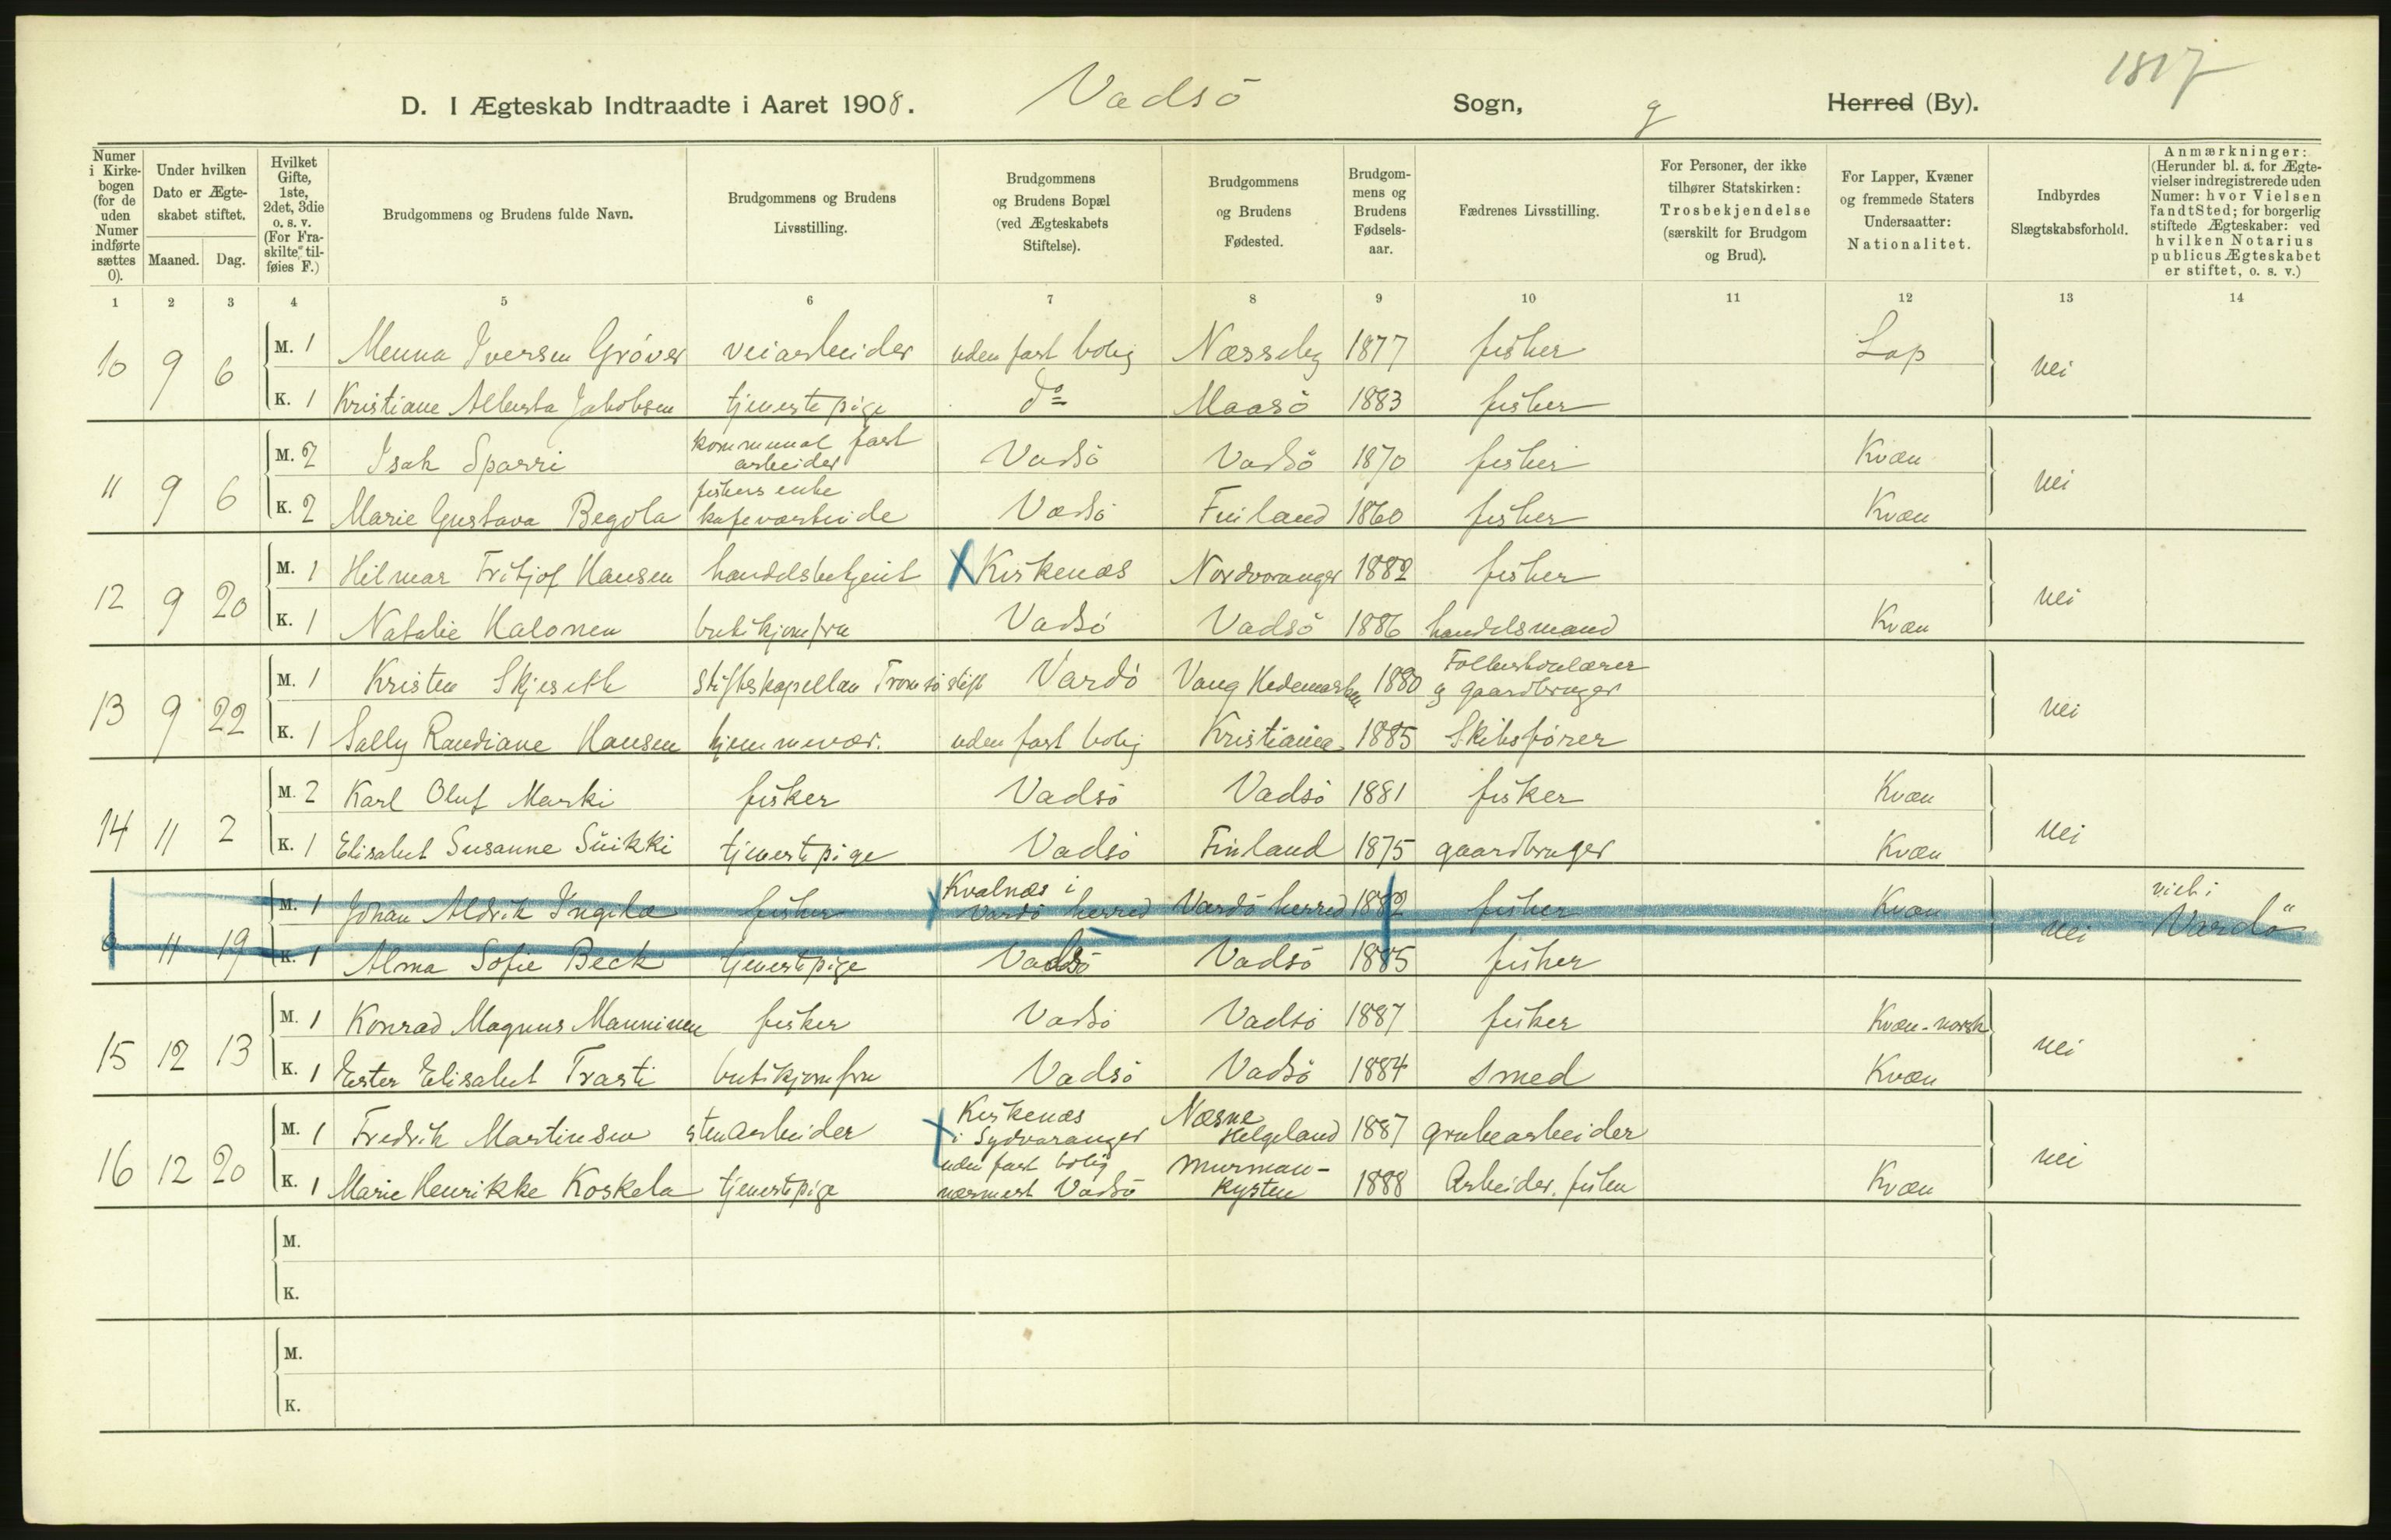 1817
D. I Ægteskab Indtraadte i Aaret 1908. Vadsö Sogn, g Herred (By).
Numer i Kirkebogen (for de uden Numer indførte sættes 0).
Under hvilken Dato er Ægteskabet stiftet.
Maaned. Dag.
Hvilket Gifte, 1ste, 2det, 3die o. s. v. (For Fraskilte tilføies F.)
Brudgommens og Brudens fulde Navn.
Brudgommens og Brudens Livsstilling.
Brudgommens og Brudens Bopæl (ved Ægteskabets Stiftelse).
Brudgommens og Brudens Fødested.
Brudgommens og Brudens Fødselsaar.
Fædrenes Livsstilling.
For Personer, der ikke tilhører Statskirken: Trosbekjendelse (særskilt for Brudgom og Brud).
For Lapper, Kvæner og fremmede Staters Undersaatter: Nationalitet.
Indbyrdes Slægtskabsforhold.
Anmærkninger: (Herunder bl. a. for Ægtevielser indregistrerede uden Numer: hvor Vielsen fandt Sted; for borgerlig stiftede Ægteskaber: ved hvilken Notarius publicus Ægteskabet er stiftet, o. s. v.)
1 2 3 4 5 6 7 8 9 10 11 12 13 14
10 9 6 M. 1 Menna Iversen Gröver veiarbeider uden fast bolig Næsseby 1877 fisker Lap nei
K. 1 Kristiane Alberta Jakobsen tjenestepige do Maasö 1883 fisker
11 9 6 M. 2 Isak Sparri kommunal fast arbeider Vadsö Vadsö 1870 fisker Kvæn nei
K. 2 Marie Gustava Begola fiskers enke Vadsö Finland 1860 fisker Kvæn
12 9 20 M. 1 Hilmar Fritjof Hansen handelsbetjent X Kirkenæs Nordvaranger 1882 fisker nei
K. 1 Natalie Halonen butikjomfru Vadsö Vadsö 1886 handelsmand Kvæn
13 9 22 M. 1 Kristen Skjeseth stiftskapellan Tromsö stift Vardö Vang Hedemarken 1880 Folkeskolelærer og gaardbruger nei
K. 1 Sally Randiane Hansen hjemmevær. uden fast bolig Kristiania 1885 Skibsfører
14 11 2 M. 2 Karl Oluf Marki fisker Vadsö Vadsö 1881 fisker Kvæn nei
K. 1 Elisabet Susanne Siikki tjenestepige Vadsö Finland 1875 gaardbruger Kvæn
0 11 19 M. 1 Johan Aldrik Ingila fisker X Kvalnæs i Vardö herred Vardö herred 1882 fisker Kvæn nei viet i Vardö
K. 1 Alma Sofie Beck tjenestepige Vadsö Vadsö 1885 fisker
15 12 13 M. 1 Konrad Magnus Manninen fisker Vadsö Vadsö 1887 fisker Kvæn-norsk nei
K. 1 Ester Elisabet Trasti butikjomfru Vadsö Vadsö 1884 smed Kvæn
16 12 20 M. 1 Fredrik Martinsen stenarbeider X Kirkenæs i Sydvaranger Næsne Helgeland 1887 grubearbeider nei
K. 1 Marie Henrikke Koskela tjenestepige uden fast bolig nærmest Vadsö Murmankysten 1888 Arbeider, fisker Kvæn
M.
K.
M.
K.